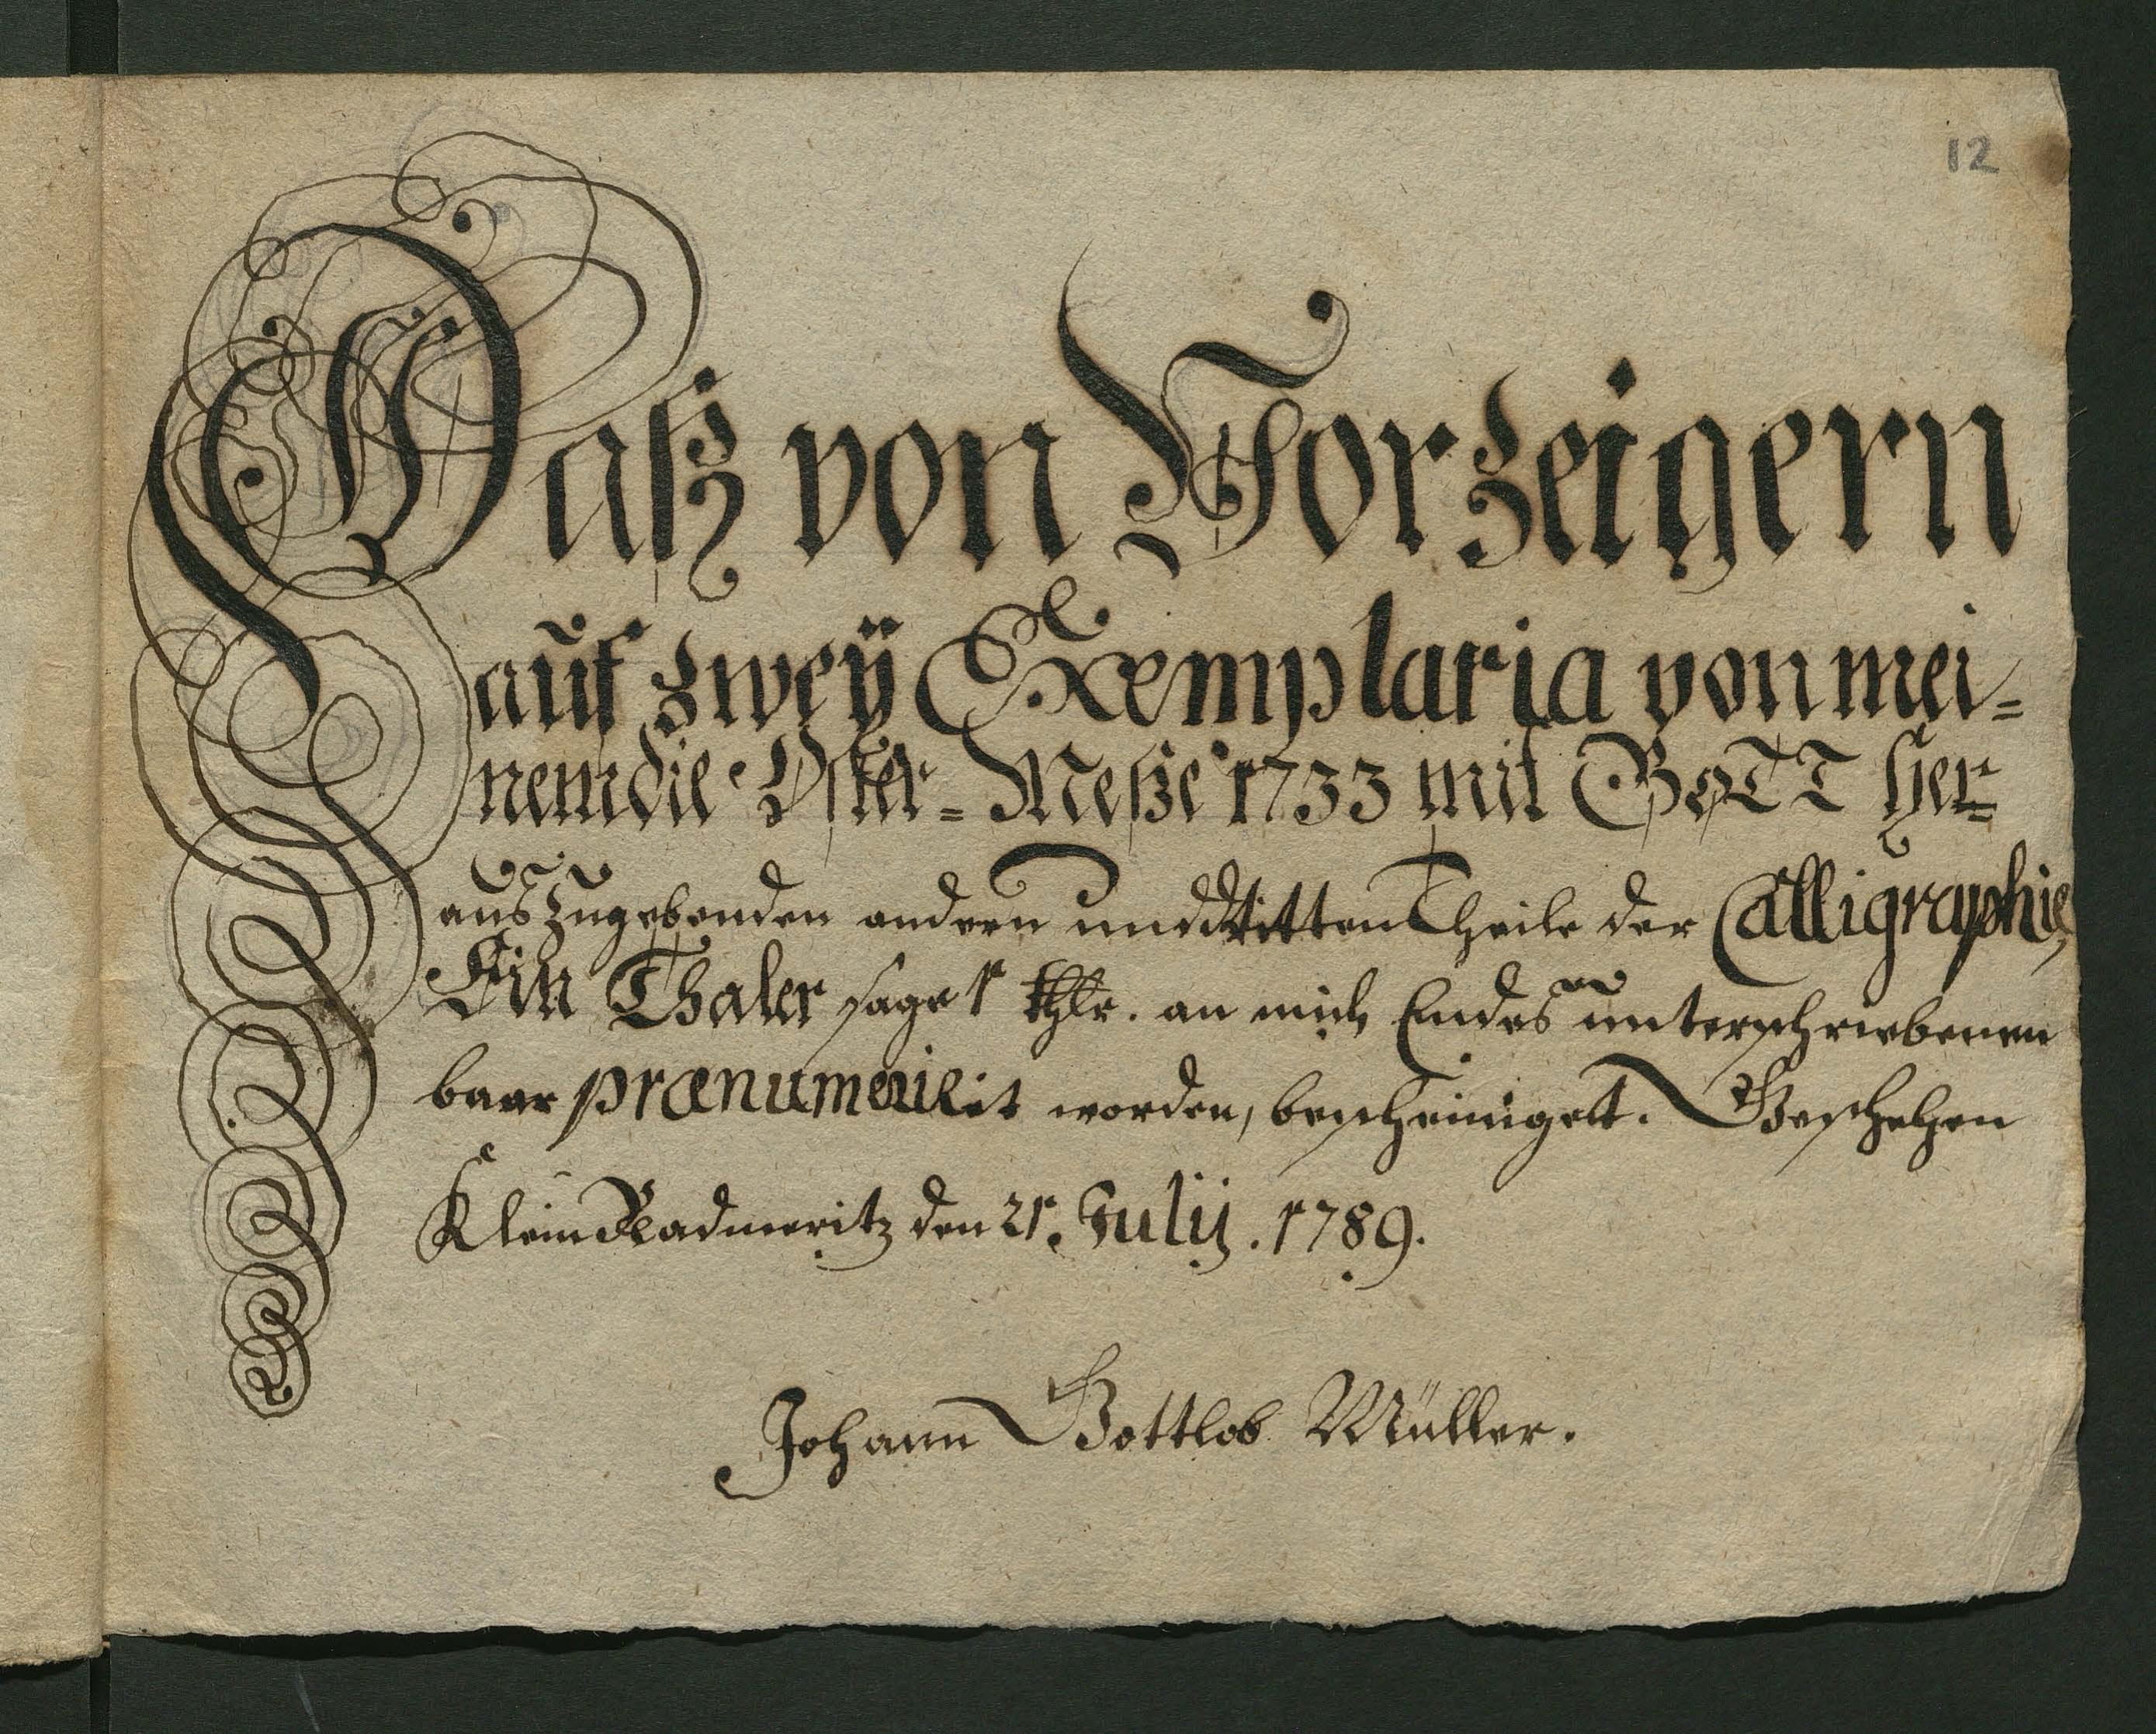 12
Daß von Vorzeigern
auf zweÿ Exemplaria von mei=
nem die Oster=Meße 1733 mit GOTT her=
auszugebenden andern und dritten Theile der Calligraphie,
Ein Thaler sage 1 thlr. an mich Endes unterschriebenen
baar prænumerirt worden, bescheiniget. Geschehen
Klein Radmeritz den 21. Julij. 1789.
Johann Gottlob Müller.